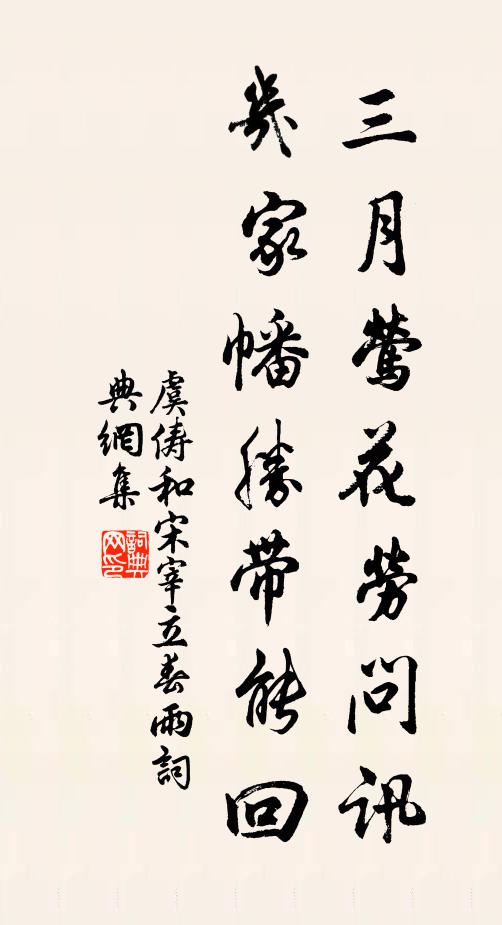 三月鶯花勞問訊
幾家幡勝帶能回
虞儔和宋宰立春雨詞
典網集
詞典
网印